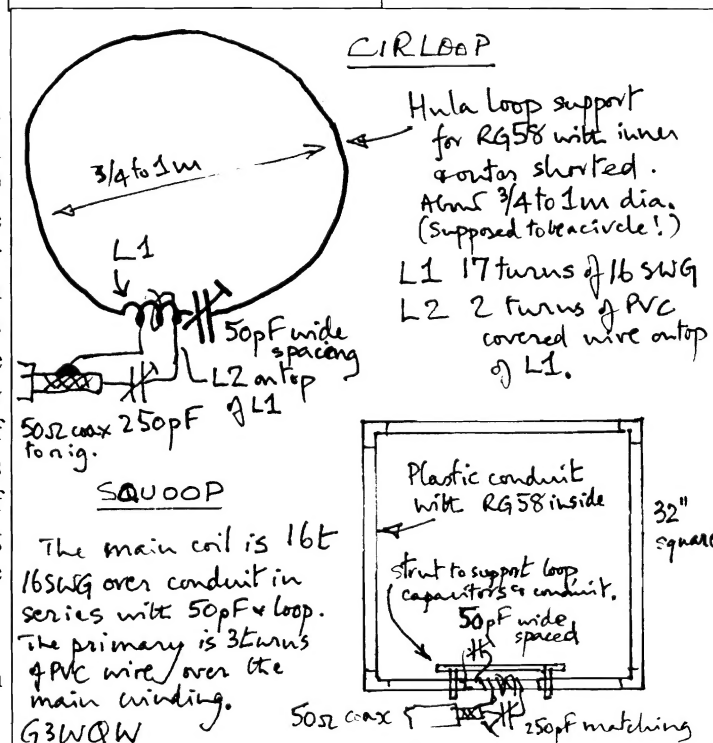 CIRLOOP
Hula loop support
for RG58 with inner
& outer shorted.
About 3/4 to 1m dia.
(Supposed to be a circle!)
L1 17 turns of 16 SWG
L2 2 turns of PVC
covered wire on top
of L1.
3/4 to 1m
L1
50pF wide
spacing
L2 on top
of L1
50Ω coax 250pF
to rig.
SQUOOP
The main coil is 16t
16SWG over conduit in
series with 50pF & loop.
The primary is 3 turns
of PVC wire over the
main winding.
G3WQW
Plastic conduit
with RG58 inside
32"
square
strut to support loop
capacitors & conduit.
50pF wide
spaced
50Ω coax
250pF matching